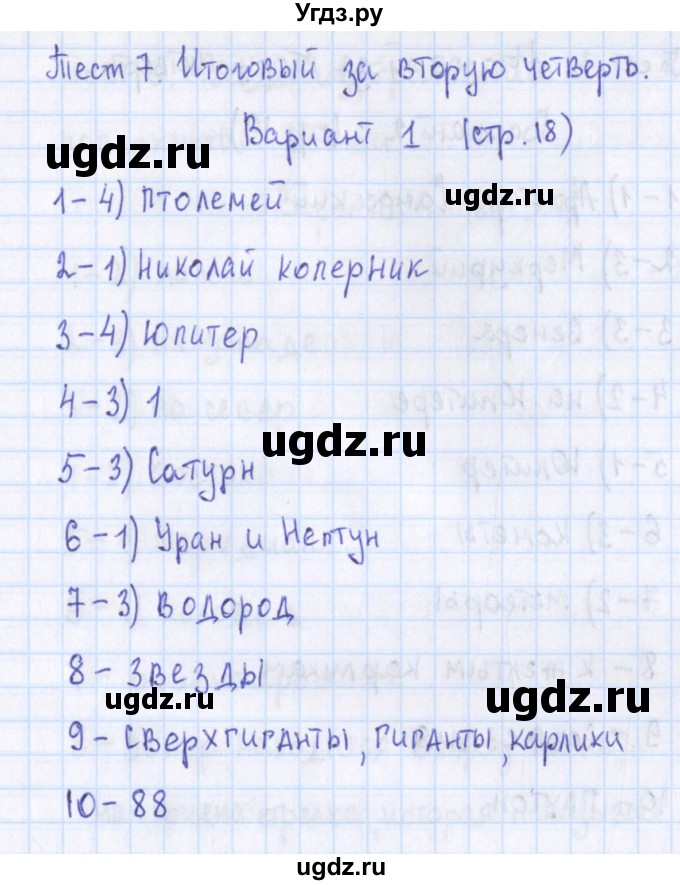 Угдз.ру
Тест 7. Итоговый за вторую четверть.
Вариант 1 (стр.18)
ugdz.ru
ugdz.ru
1-4) Птолемей
2-1) Николай Коперник
3-4) Юпитер
4-3) 1
ugdz.ru
5-3) Сатурн
6-1) Уран и Нептун
7-3) водород
8- звезды
ugdz.ru
ugdz.ru
9- сверхгиганты, гиганты, карлики
10-88
ugdz.ru